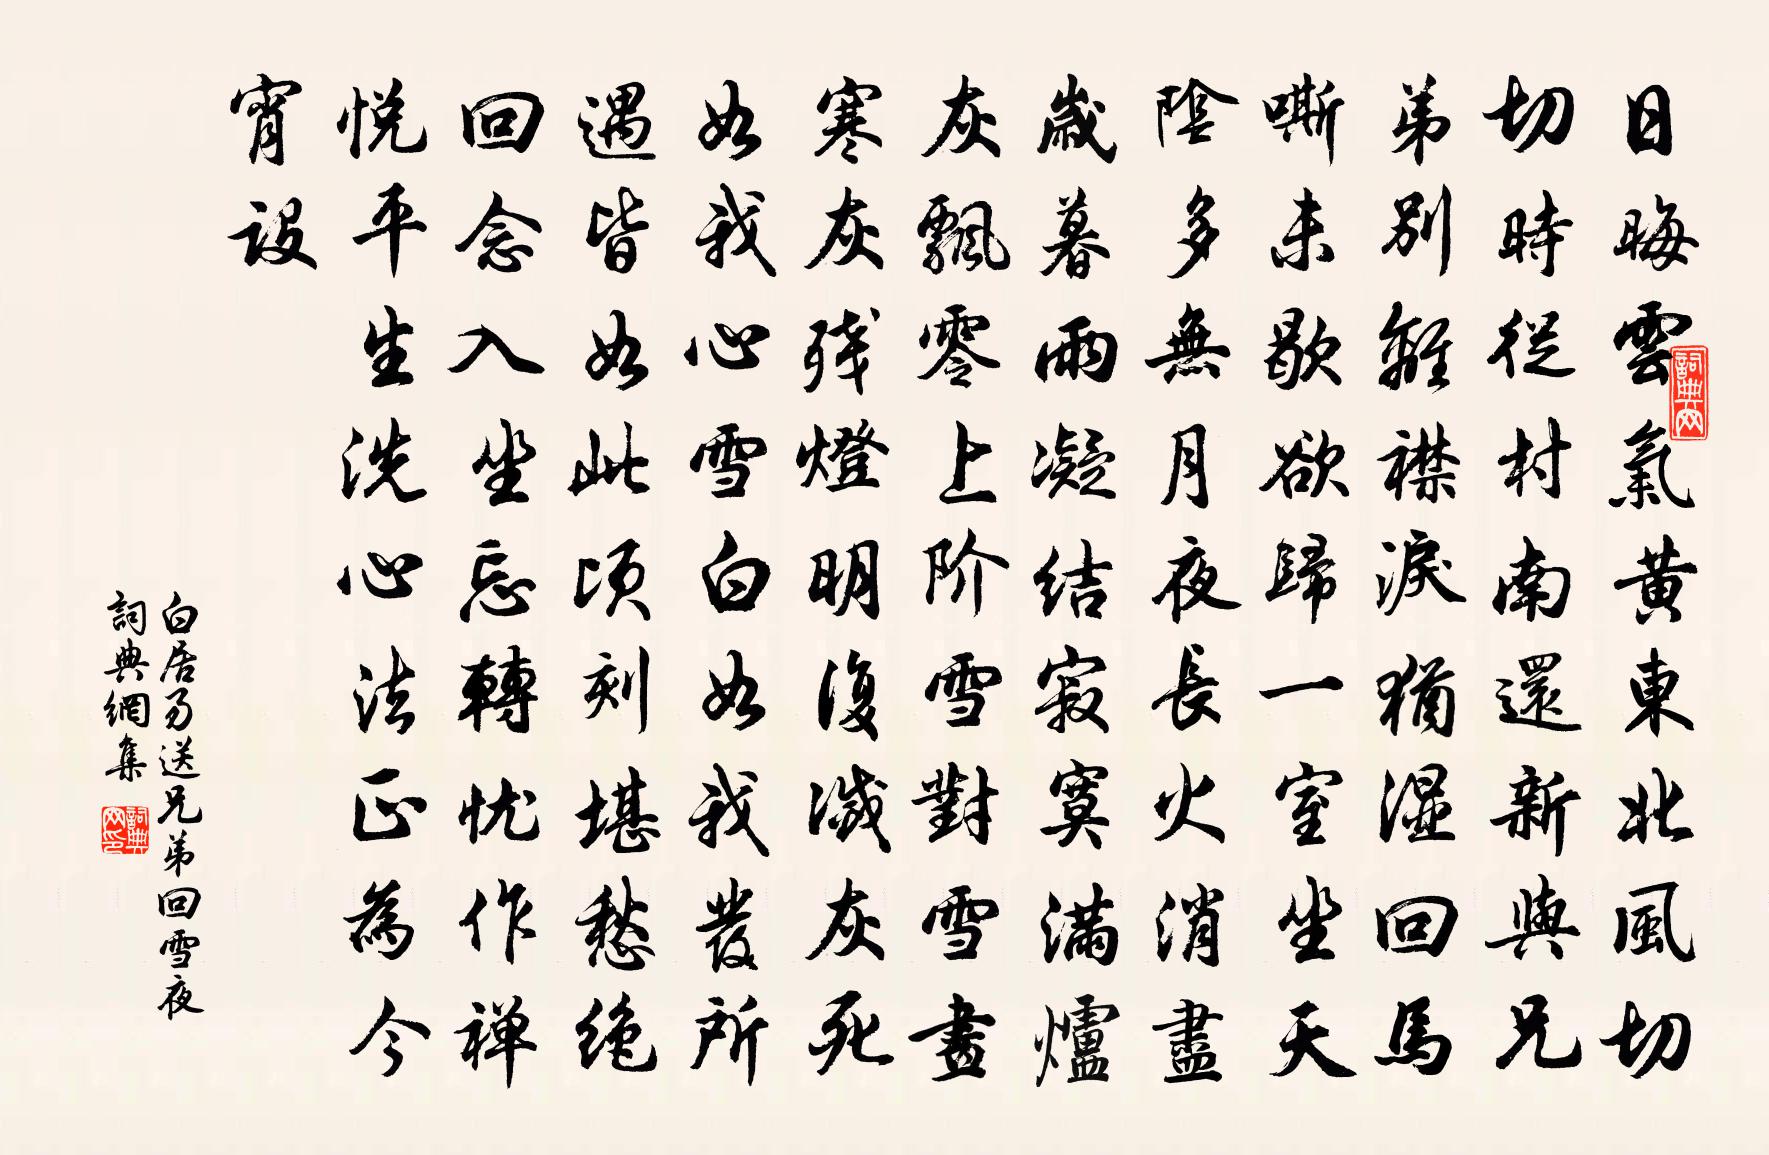 日晦雲氣黄東北風切
切時從村南還新與兄
弟别離襟淚猶湿回馬
嘶未歇欲歸一室坐天
陰多無月夜長火消盡
歲暮雨凝結寂寞滿爐
灰飄零上阶雪對雪畫
寒灰残燈明復滅灰死
如我心雪白如我發所
遇皆如此頃刻堪愁绝
回念入坐忘轉忧作禅
悦平生洗心法正為今
宵設
白居易送兄弟回雪夜
詞典網集
詞典网
詞典网印